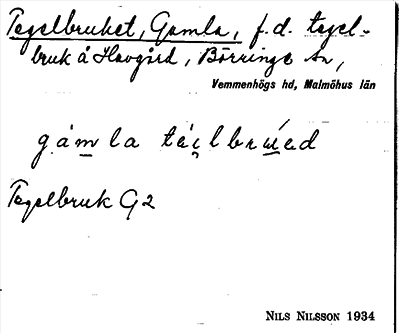 Tegelbruket, Gamla, f.d. tegel-
bruk å Havgård, Börringe sn,
Vemmenhögs hd, Malmöhus län
gamla
Tegelbruk G2
NILS NILSSON 1934